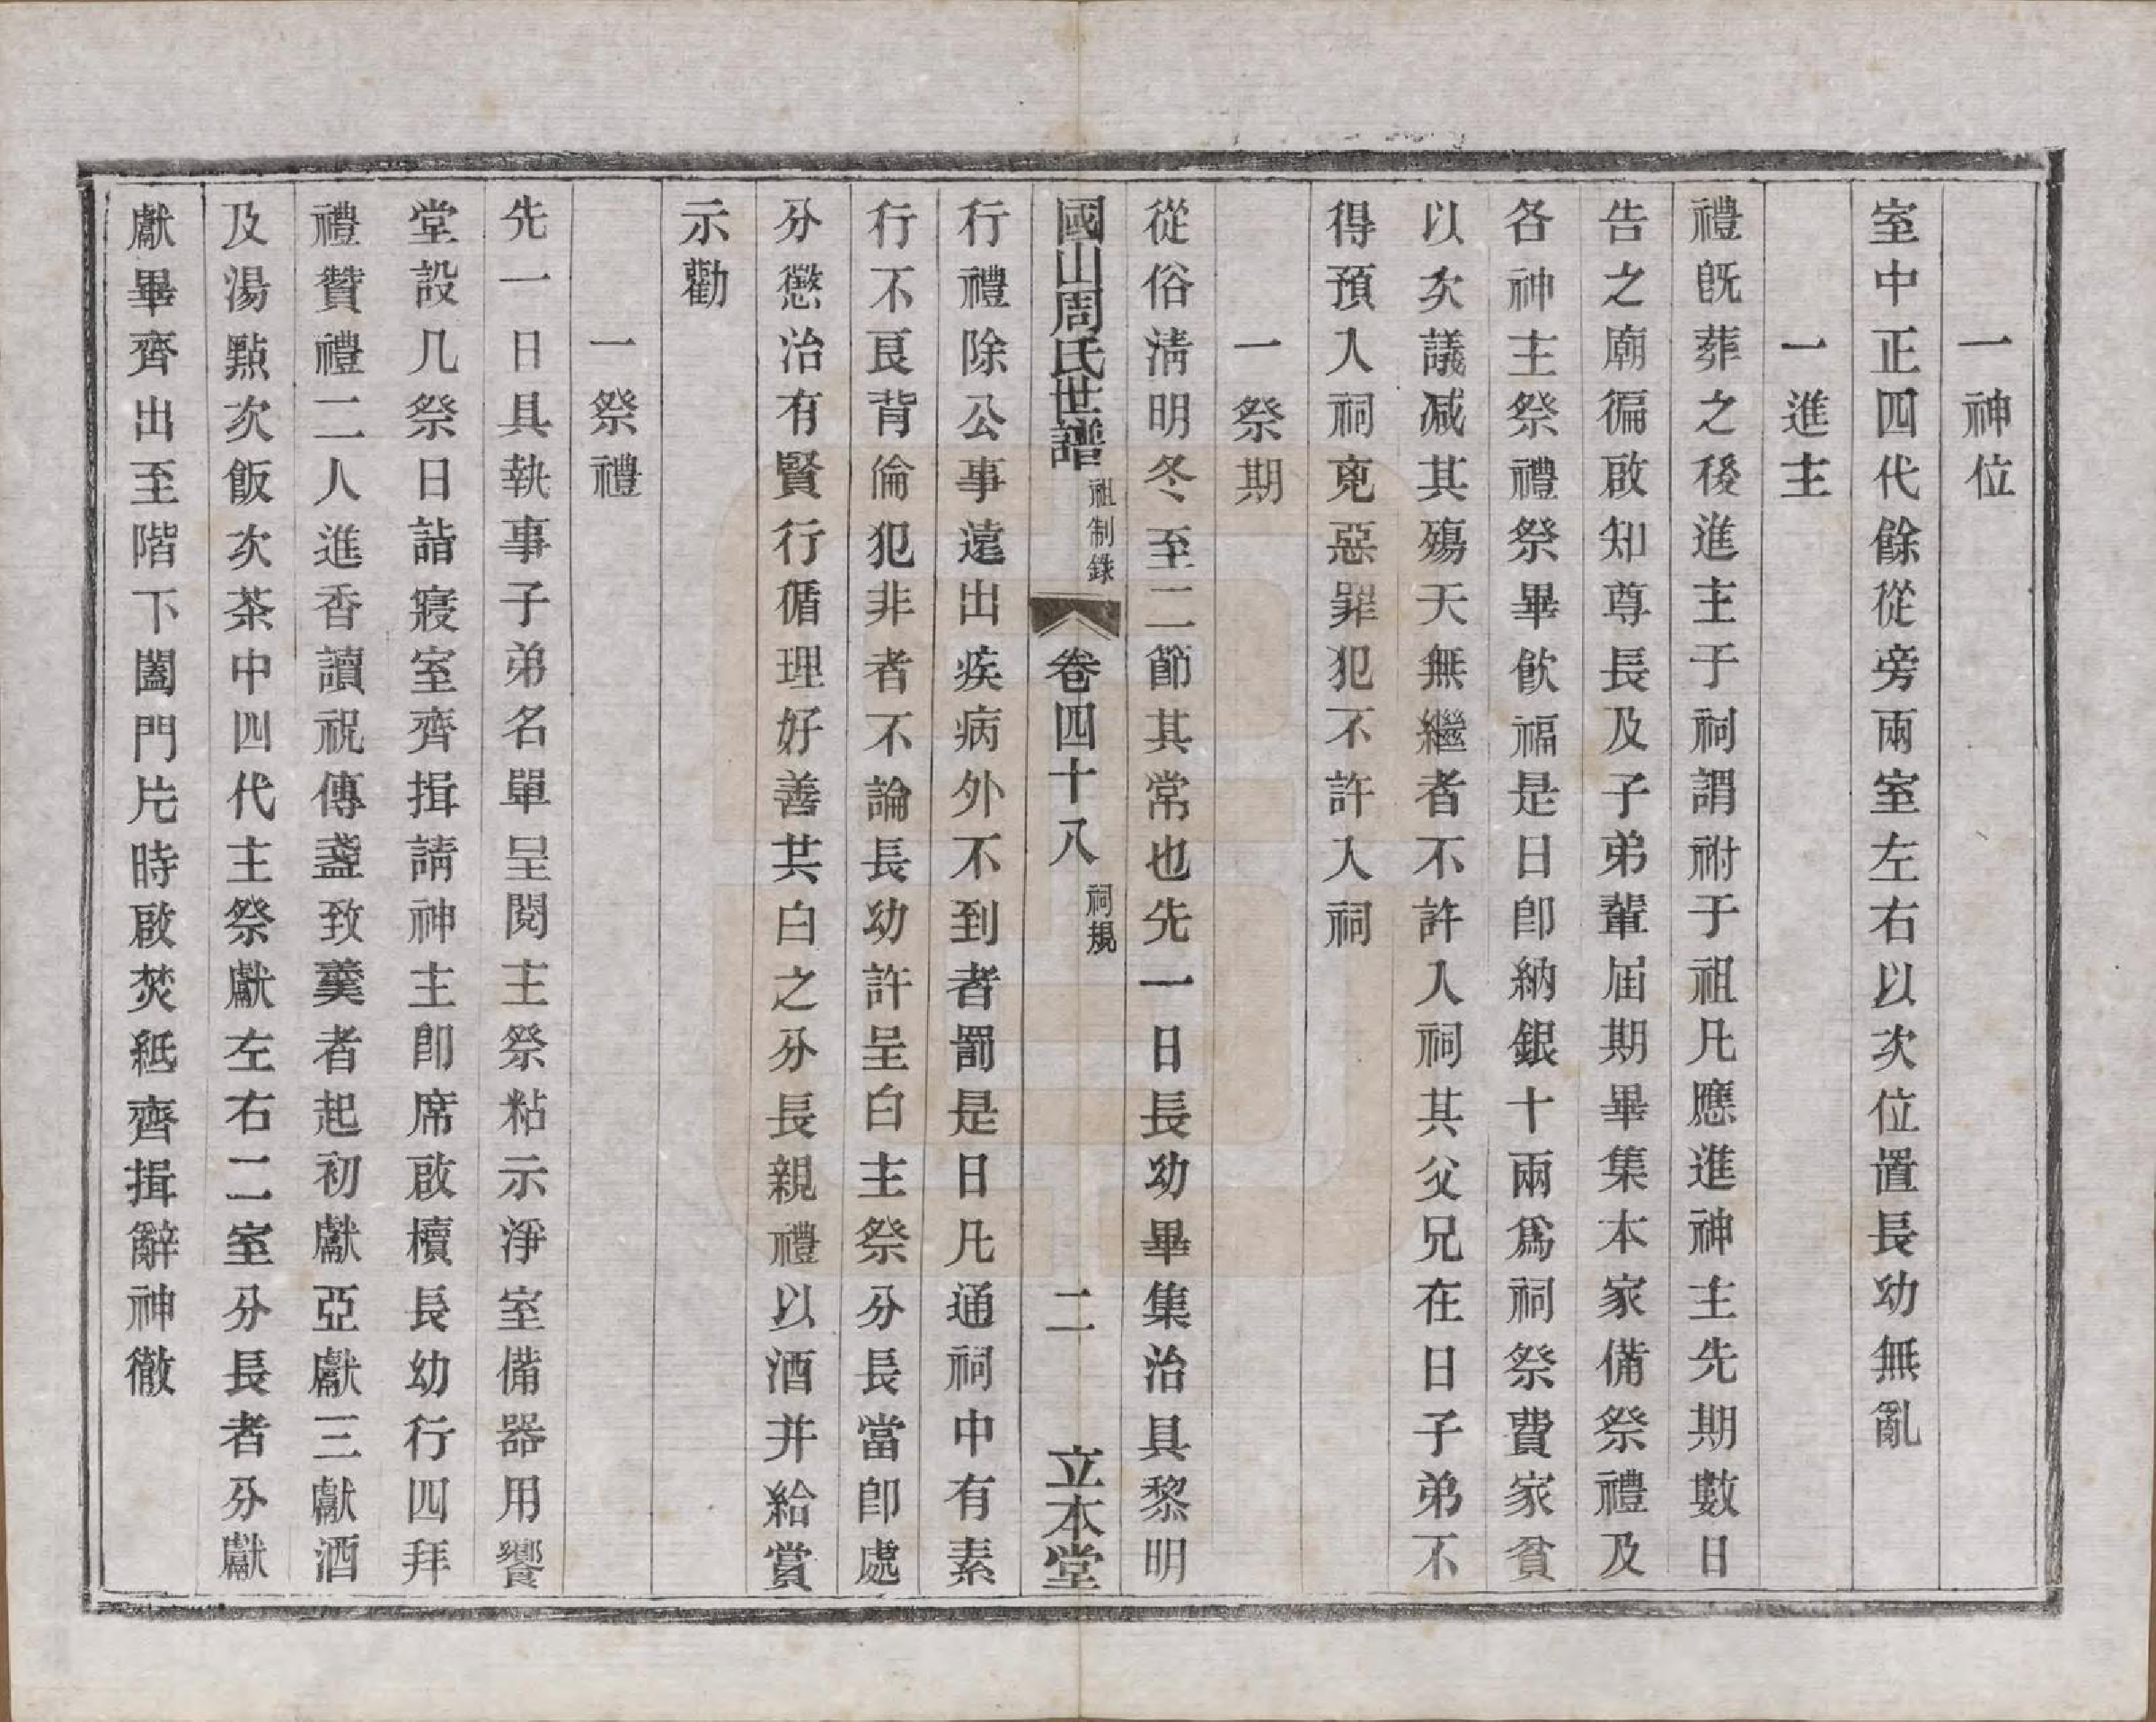 一神位
室中正四代餘從旁兩室左右以次位置長幼無亂
一進主
禮既葬之後進主于祠謂祔于祖凡應進神主先期數日
告之廟徧啟知尊長及子弟輩屆期畢集本家備祭禮及
各神主祭禮祭畢飲福是日卽納銀十兩爲祠祭費家貧
以次議减其殤夭無繼者不許入祠其父兄在日子弟不
得預入祠兇惡罪犯不許入祠
一祭期
從俗清明冬至二節其常也先一日長幼畢集治具黎明
國山周氏世譜 祖制錄 卷四十八 祠規 二 立本堂
行禮除公事遠出疾病外不到者罰是日凡通祠中有素
行不良背倫犯非者不論長幼許呈白主祭分長當卽處
分懲治有賢行循理好善共白之分長親禮以酒并給賞
示勸
一祭禮
先一日具執事子弟名單呈閱主祭粘示淨室備器用饗
堂設几祭日詣寢室齊揖請神主卽席啟櫝長幼行四拜
禮贊禮二人進香讀祝傳盞致羹者起初獻亞獻三獻酒
及湯點次飯次茶中四代主祭獻左右二室分長者分獻
獻畢齊出至階下闔門片時啟焚紙齊揖辭神徹